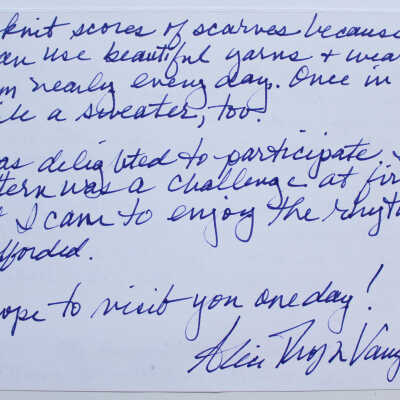 knit scores of scarves because
an use beautiful yarns + wea
m nearly every day. Once in
ile a sweater, too.
as delighted to participate.
ttern was a challenge at fir
I came to enjoy the rhyt
fforded.
ope to visit you one day!
Alice